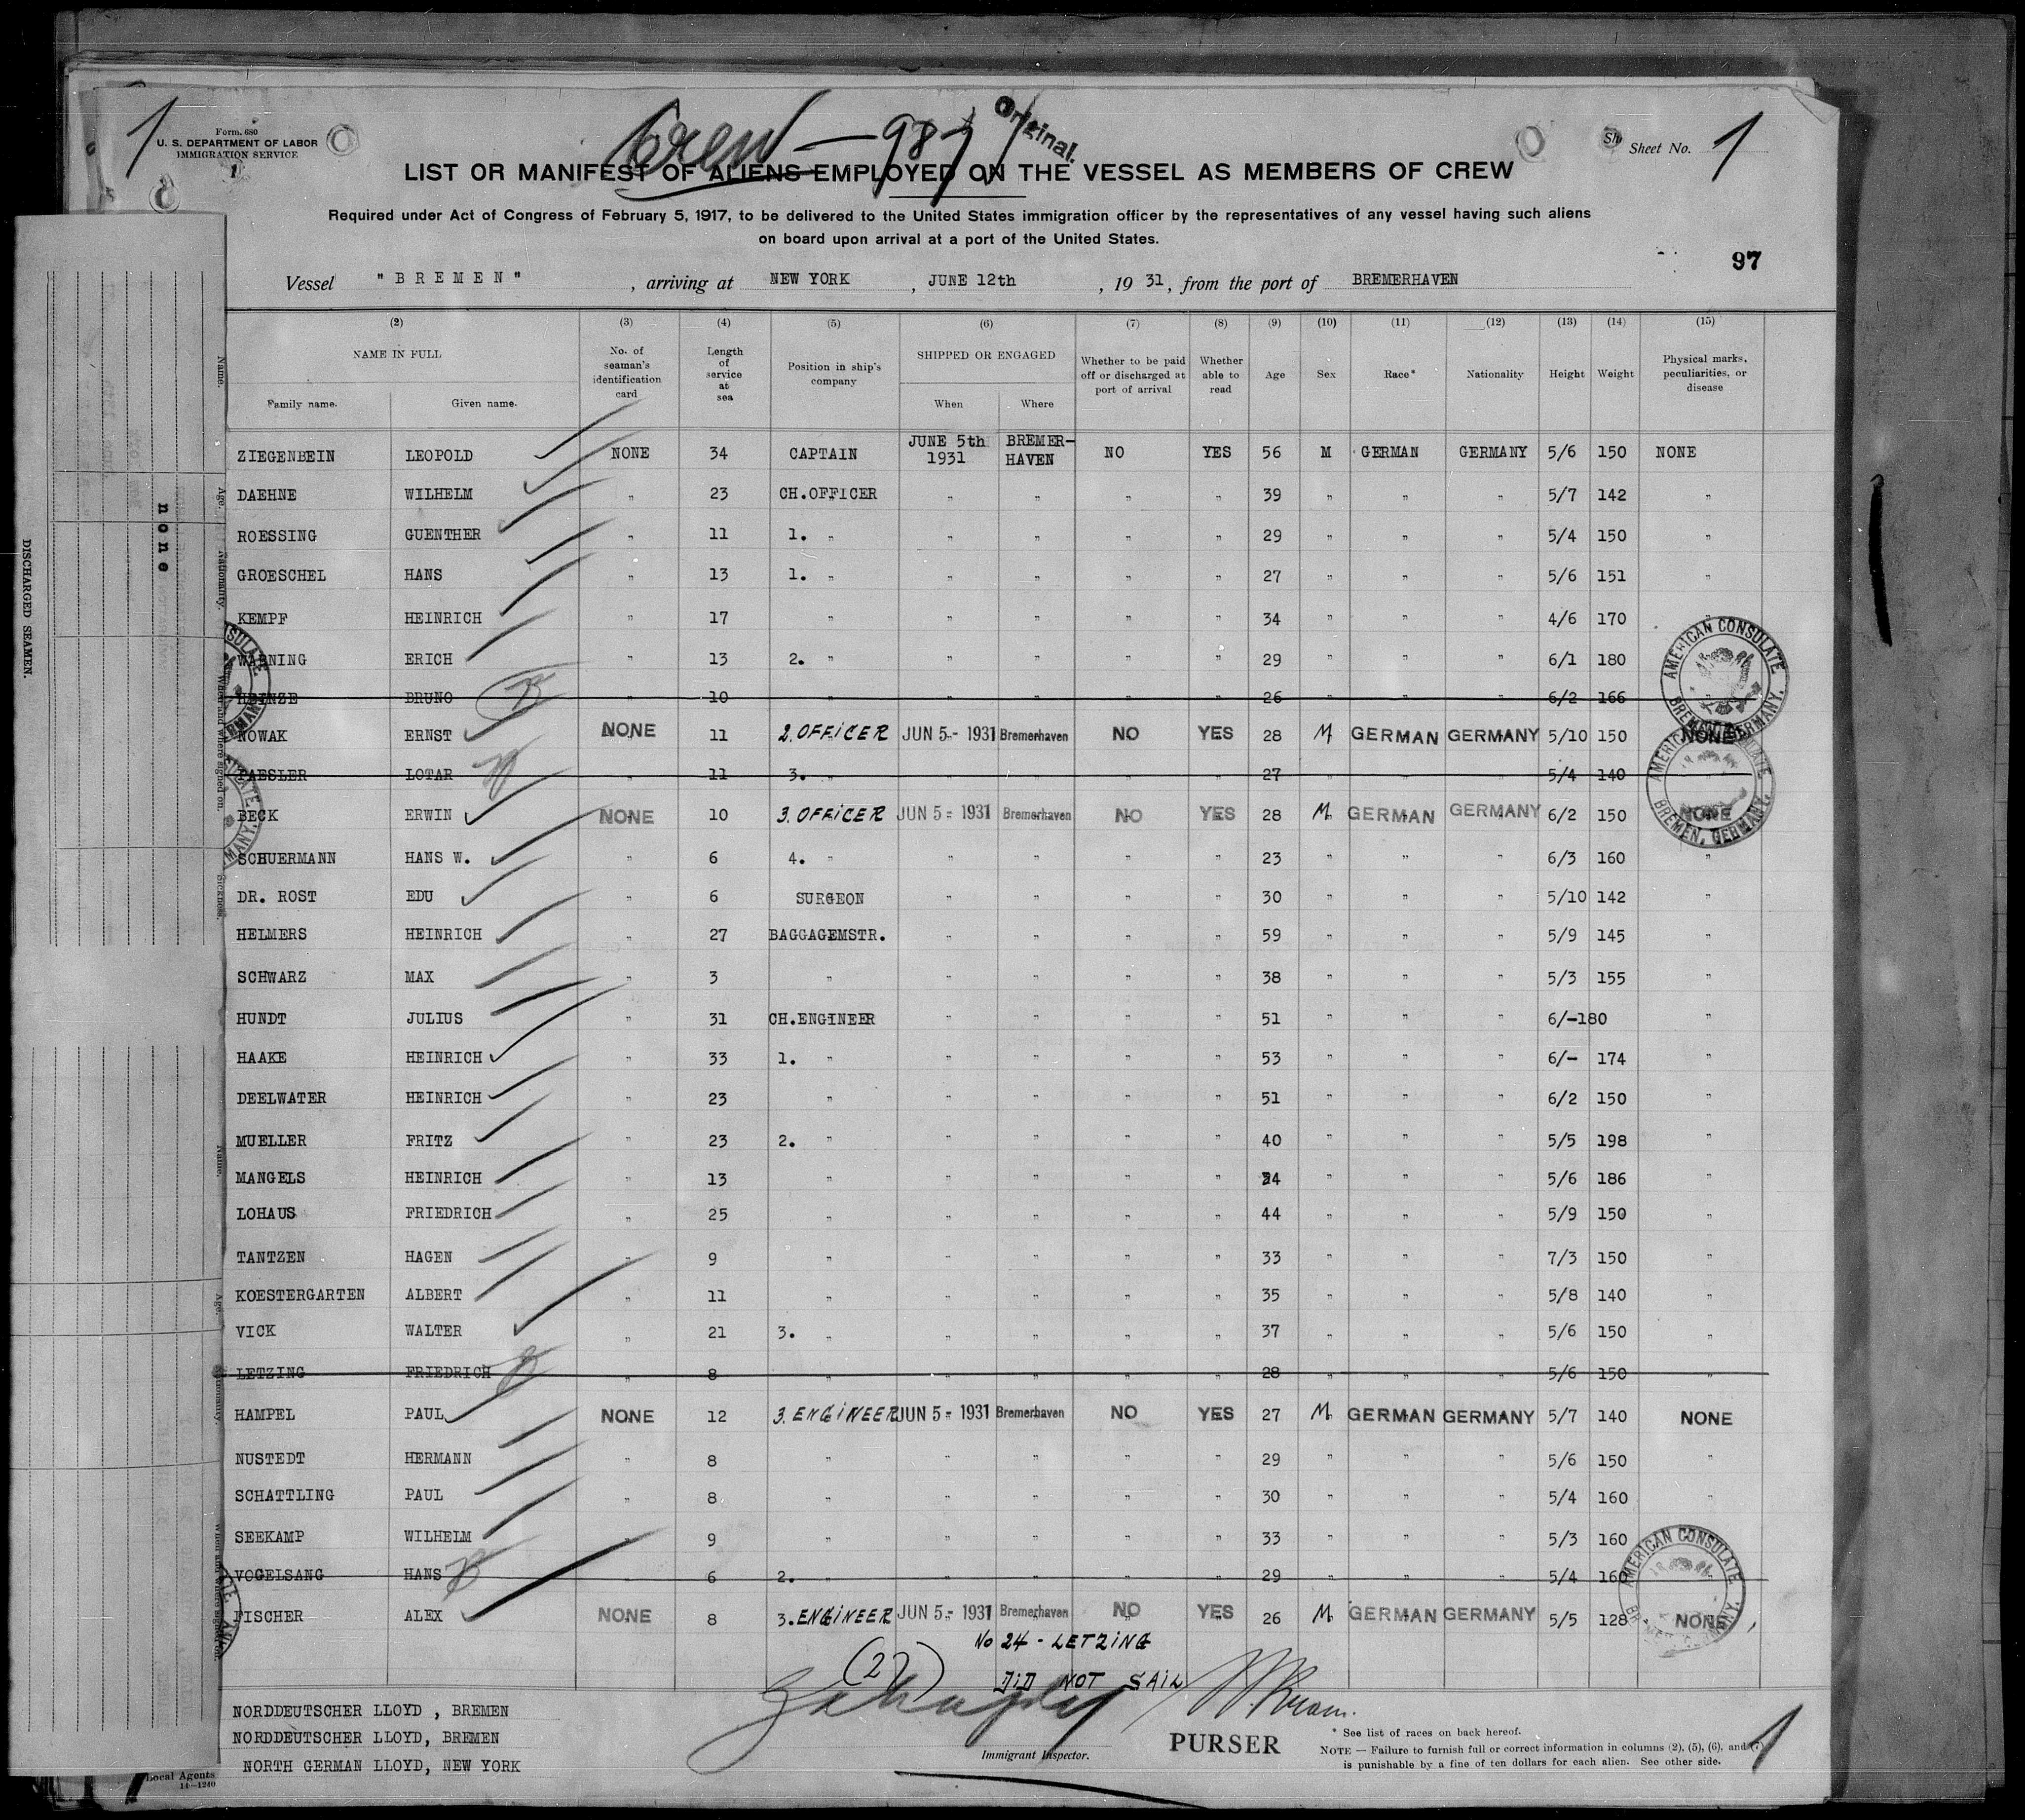 1
Form. 680
U. S. DEPARTMENT OF LABOR
IMMIGRATION SERVICE
1
Crew — 987
Original.
Sheet No. 1
LIST OR MANIFEST OF ALIENS EMPLOYED ON THE VESSEL AS MEMBERS OF CREW
Required under Act of Congress of February 5, 1917, to be delivered to the United States immigration officer by the representatives of any vessel having such aliens
on board upon arrival at a port of the United States.
97
Vessel "BREMEN", arriving at NEW YORK, JUNE 12th, 1931, from the port of BREMERHAVEN
(2) (3) (4) (5) (6) (7) (8) (9) (10) (11) (12) (13) (14) (15)
NAME IN FULL
Family name. Given name.
No. of seaman's identification card
Length of service at sea
Position in ship's company
SHIPPED OR ENGAGED
When Where
Whether to be paid off or discharged at port of arrival
Whether able to read
Age
Sex
Race*
Nationality
Height
Weight
Physical marks, peculiarities, or disease
ZIEGENBEIN LEOPOLD NONE 34 CAPTAIN JUNE 5th 1931 BREMER-HAVEN NO YES 56 M GERMAN GERMANY 5/6 150 NONE
DAEHNE WILHELM " 23 CH.OFFICER " " " " 39 " " " 5/7 142 "
ROESSING GUENTHER " 11 1. " " " " " 29 " " " 5/4 150 "
GROESCHEL HANS " 13 1. " " " " " 27 " " " 5/6 151 "
KEMPF HEINRICH " 17 " " " " " 34 " " " 4/6 170 "
WARNING ERICH " 13 2. " " " " " 29 " " " 6/1 180
HEINZE BRUNO " 10 " " " " " 26 " " " 6/2 166
NOWAK ERNST NONE 11 2. OFFICER JUN 5 - 1931 Bremerhaven NO YES 28 M GERMAN GERMANY 5/10 150 NONE
TAESLER LOTAR " 11 3. " " " " " 27 " " " 5/4 140
BECK ERWIN NONE 10 3. OFFICER JUN 5 - 1931 Bremerhaven NO YES 28 M GERMAN GERMANY 6/2 150 NONE
SCHUERMANN HANS W. " 6 4. " " " " " 23 " " " 6/3 160 "
DR. ROST EDU " 6 SURGEON " " " " 30 " " " 5/10 142 "
HELMERS HEINRICH " 27 BAGGAGEMSTR. " " " " 59 " " " 5/9 145 "
SCHWARZ MAX " 3 " " " " " 38 " " " 5/3 155 "
HUNDT JULIUS " 31 CH.ENGINEER " " " " 51 " " " 6/-180 "
HAAKE HEINRICH " 33 1. " " " " " 53 " " " 6/- 174 "
DEELWATER HEINRICH " 23 " " " " " 51 " " " 6/2 150 "
MUELLER FRITZ " 23 2. " " " " " 40 " " " 5/5 198 "
MANGELS HEINRICH " 13 " " " " " " " " 5/6 186 "
LOHAUS FRIEDRICH " 25 " " " " " 44 " " " 5/9 150 "
TANTZEN HAGEN " 9 " " " " " 33 " " " 7/3 150 "
KOESTERGARTEN ALBERT " 11 " " " " " 35 " " " 5/8 140 "
VICK WALTER " 21 3. " " " " " 37 " " " 5/6 150 "
LETZING FRIEDRICH " 8 " " " " " 28 " " " 5/6 150 "
HAMPEL PAUL NONE 12 3. ENGINEER JUN 5 - 1931 Bremerhaven NO YES 27 M GERMAN GERMANY 5/7 140 NONE
NUSTEDT HERMANN " 8 " " " " " 29 " " " 5/6 150 "
SCHATTLING PAUL " 8 " " " " " 30 " " " 5/4 160 "
SEEKAMP WILHELM " 9 " " " " " 33 " " " 5/3 160
VOGELSANG HANS " 6 2. " " " " 29 " " " 5/4 160
FISCHER ALEX NONE 8 3. ENGINEER JUN 5 - 1931 Bremerhaven NO YES 26 M GERMAN GERMANY 5/5 128 NONE
No 24 - LETZING
DID NOT SAIL
(27)
AMERICAN CONSULATE
BREMEN, GERMANY.
AMERICAN CONSULATE
BREMEN, GERMANY.
AMERICAN CONSULATE
BREMEN, GERMANY.
NORDDEUTSCHER LLOYD , BREMEN
NORDDEUTSCHER LLOYD, BREMEN
NORTH GERMAN LLOYD, NEW YORK
Local Agents
14—1240
Immigrant Inspector.
PURSER
* See list of races on back hereof.
NOTE — Failure to furnish full or correct information in columns (2), (5), (6), and (7)
is punishable by a fine of ten dollars for each alien. See other side.
1
DISCHARGED SEAMEN.
none
Name.
Age.
Nationality.
When and where signed on.
Sickness.
Name.
Age.